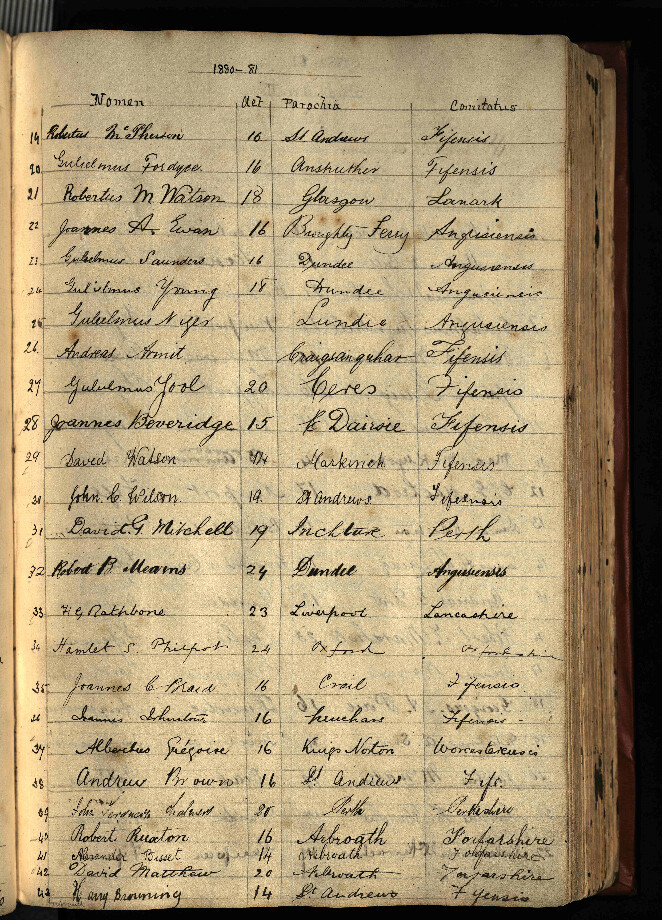 1880-81
Nomen Aet Parochia Comitatus
19 Robertus McPherson 16 St Andrews Fifensis
20 Gulielmus Fordyce 16 Anstruther Fifensis
21 Robertus M Watson 18 Glasgow Lanark
22 Joannes A. Ewan 16 Broughty Ferry Angusiensis
23 Gulielmus Saunders 16 Dundee Angusiensis
24 Gulielmus Young 18 Dundee Angusiensis
25 Gulielmus Niger Lundie Angusiensis
26 Andreas Arnit Fifensis
27 Gulielmus Yool 20 Ceres Fifensis
28 Joannes Beveridge 15 Dairsie Fifensis
29 David Watson Markinch Fifensis
30 John C. Wilson 19 St Andrews Fifensis
31 David G Mitchell 19 Inchture Perth
32 Robert B Mearns 24 Dundee Angusiensis
33 Rathbone 23 Liverpool Lancashire
34 Hamlet S. Philpot 24 Oxford Oxfordshire
35 Joannes C Braid 16 Crail Fifensis
36 16 Leuchars Fifensis
37 Albertus Grégoire 16 Kings Norton
38 Andrew Brown 16 St Andrews Fife
39 John Ferguson Chalmers 20 Perth Perthshire
40 Robert 16 Arbroath Forfarshire
41 Alexander Bisset 14 Arbroath Forfarshire
42 David Matthew 20 Arbroath Forfarshire
43 Harry Browning 14 St Andrews Fifensis